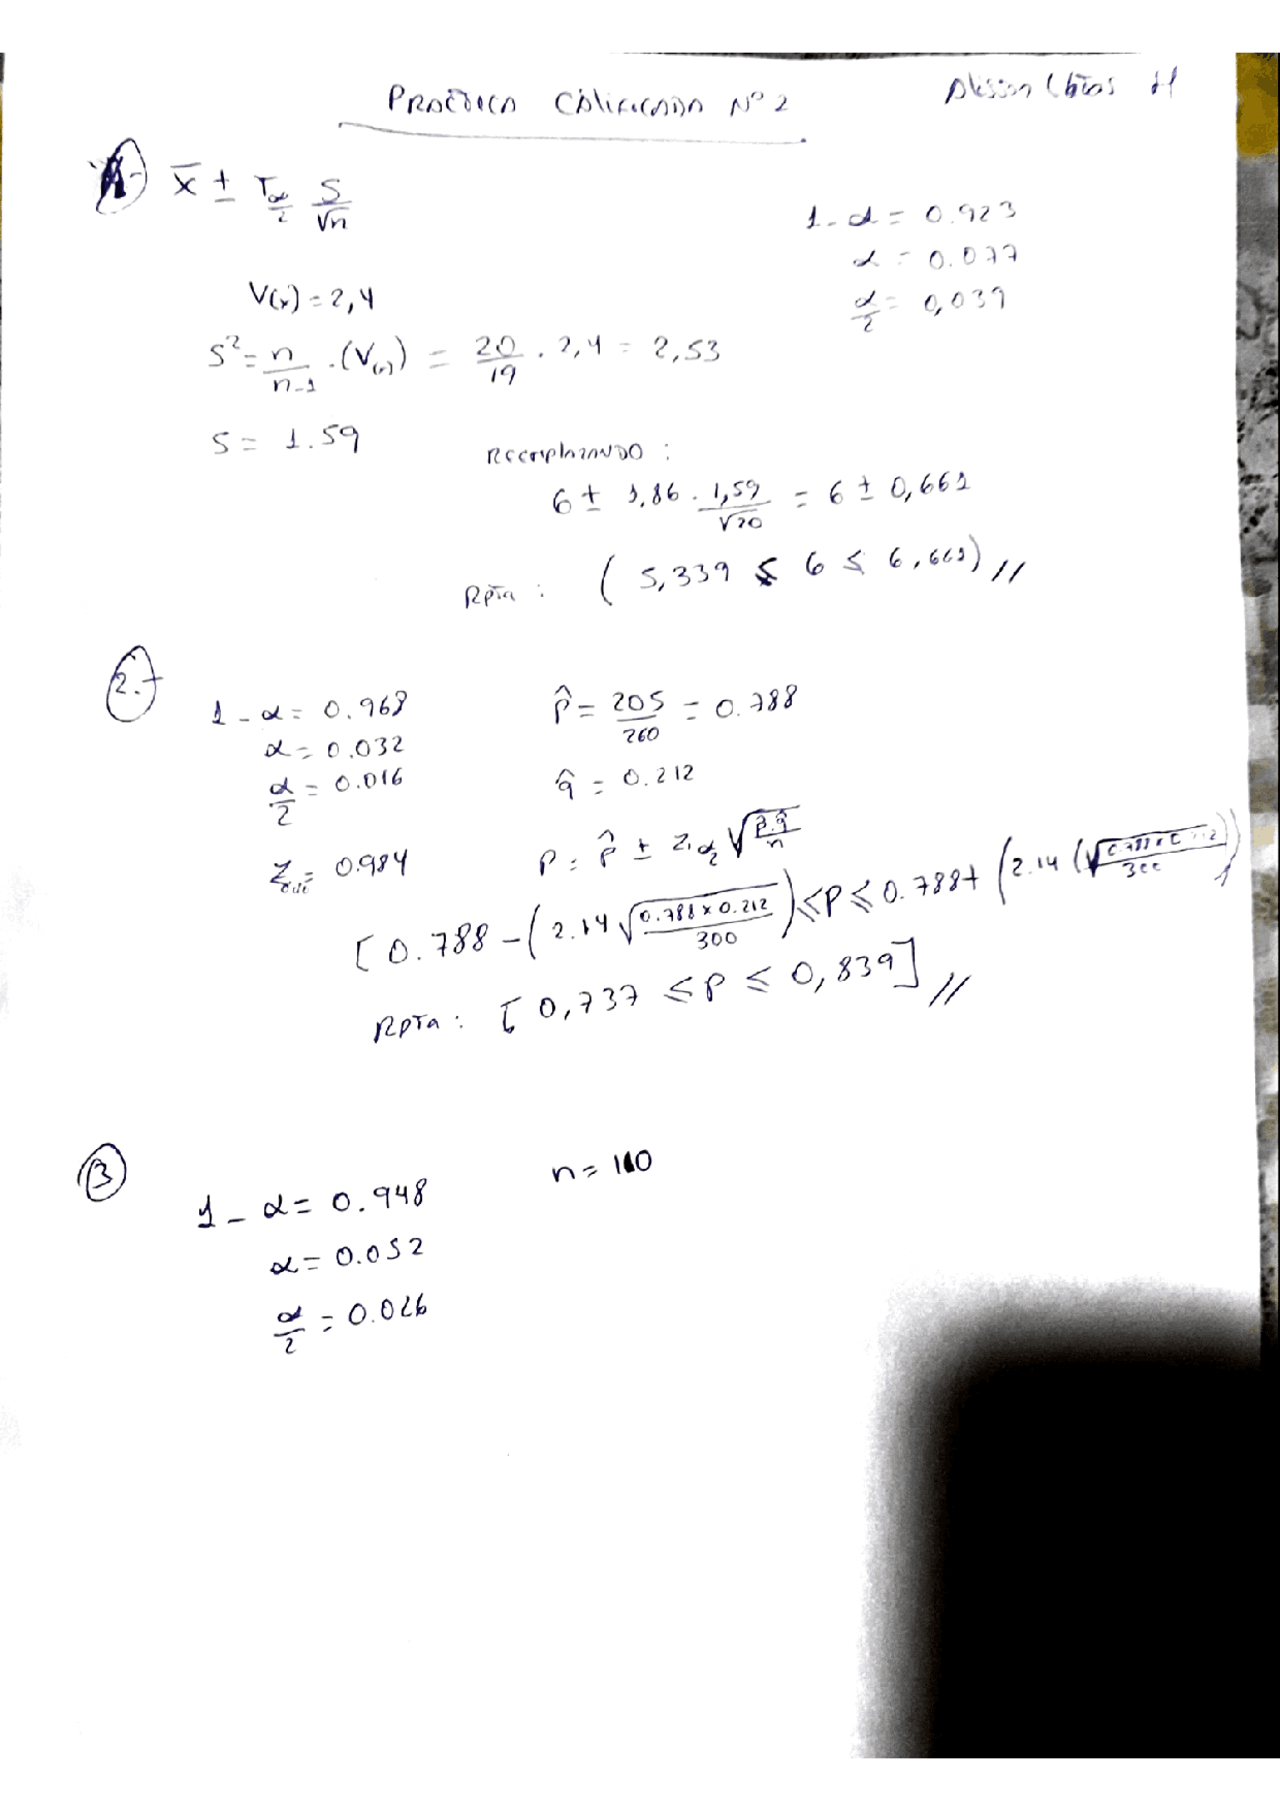 PRACTICA CALIFICADA Nº 2
1.- x̄ ± T α/2 S/√n
1 - α = 0.923
α = 0.077
α/2 = 0,039
V(x) = 2,4
S² = n/n-1 . (V(x)) = 20/19 . 2,4 = 2,53
S = 1.59
Reemplazando :
6 ± 1,86 . 1,59/√20 = 6 ± 0,661
Rpta : ( 5,339 ≤ 6 ≤ 6,661) //
2.-
1 - α = 0.968
α = 0.032
α/2 = 0.016
Z = 0.984
p̂ = 205/260 = 0.788
q̂ = 0.212
P = p̂ ± Z α/2 √p̂.q̂/n
[ 0.788 - ( 2.14 √0.788 x 0.212/300 ) ≤ P ≤ 0.788 + ( 2.14 ( √0.788 x 0.212/300 ) )
Rpta : [ 0,737 ≤ P ≤ 0,839 ] //
3
1 - α = 0.948
α = 0.052
α/2 = 0.026
n = 110